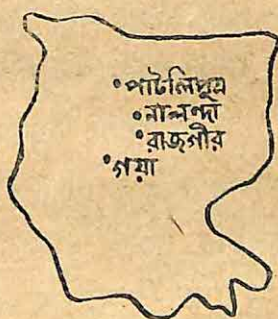 পাটলিপুত্র
নালন্দা
রাজগীর
গয়া